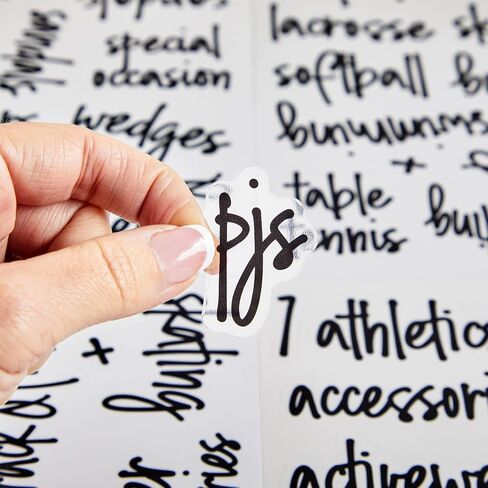 sandals
special
occasion
wedges
pjs
lacrosse
softball
swimming
+
table
nnis
skating
+
athletic
accessori
activewe